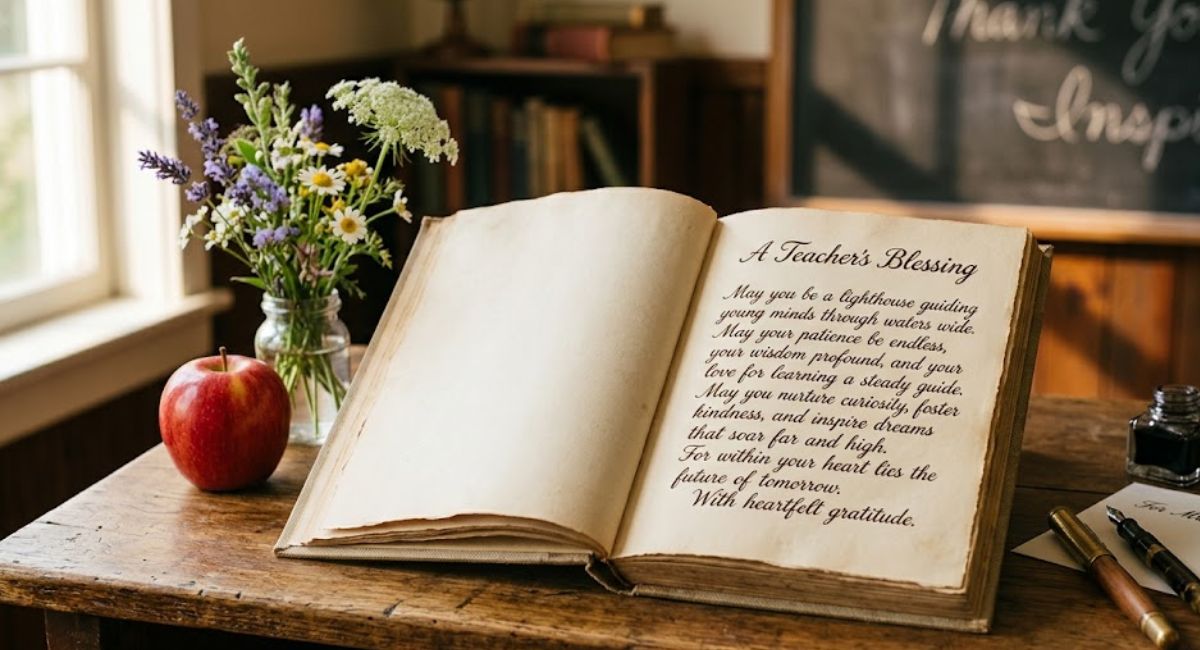 Thank Yo
Insp
A Teacher's Blessing
May you be a lighthouse guiding
young minds through waters wide.
May your patience be endless,
your wisdom profound, and your
love for learning a steady guide.
May you nurture curiosity, foster
kindness, and inspire dreams
that soar far and high.
For within your heart lies the
future of tomorrow.
With heartfelt gratitude.
For